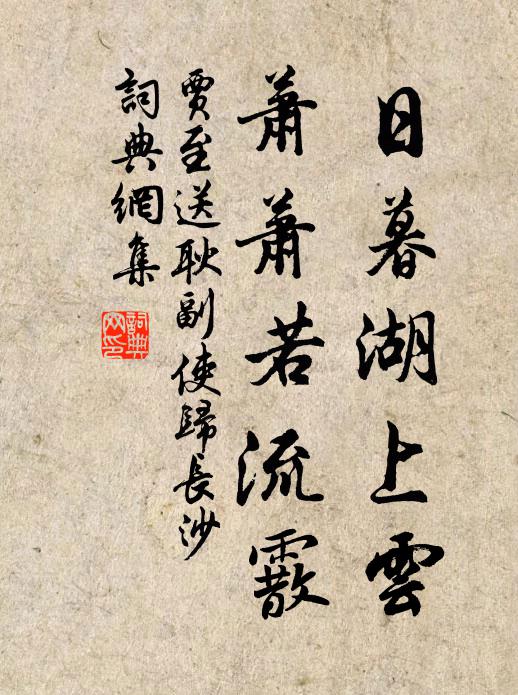 日暮湖上雲
蕭蕭若流霰
賈至送耿副使歸長沙
詞典網集
詞典
网印